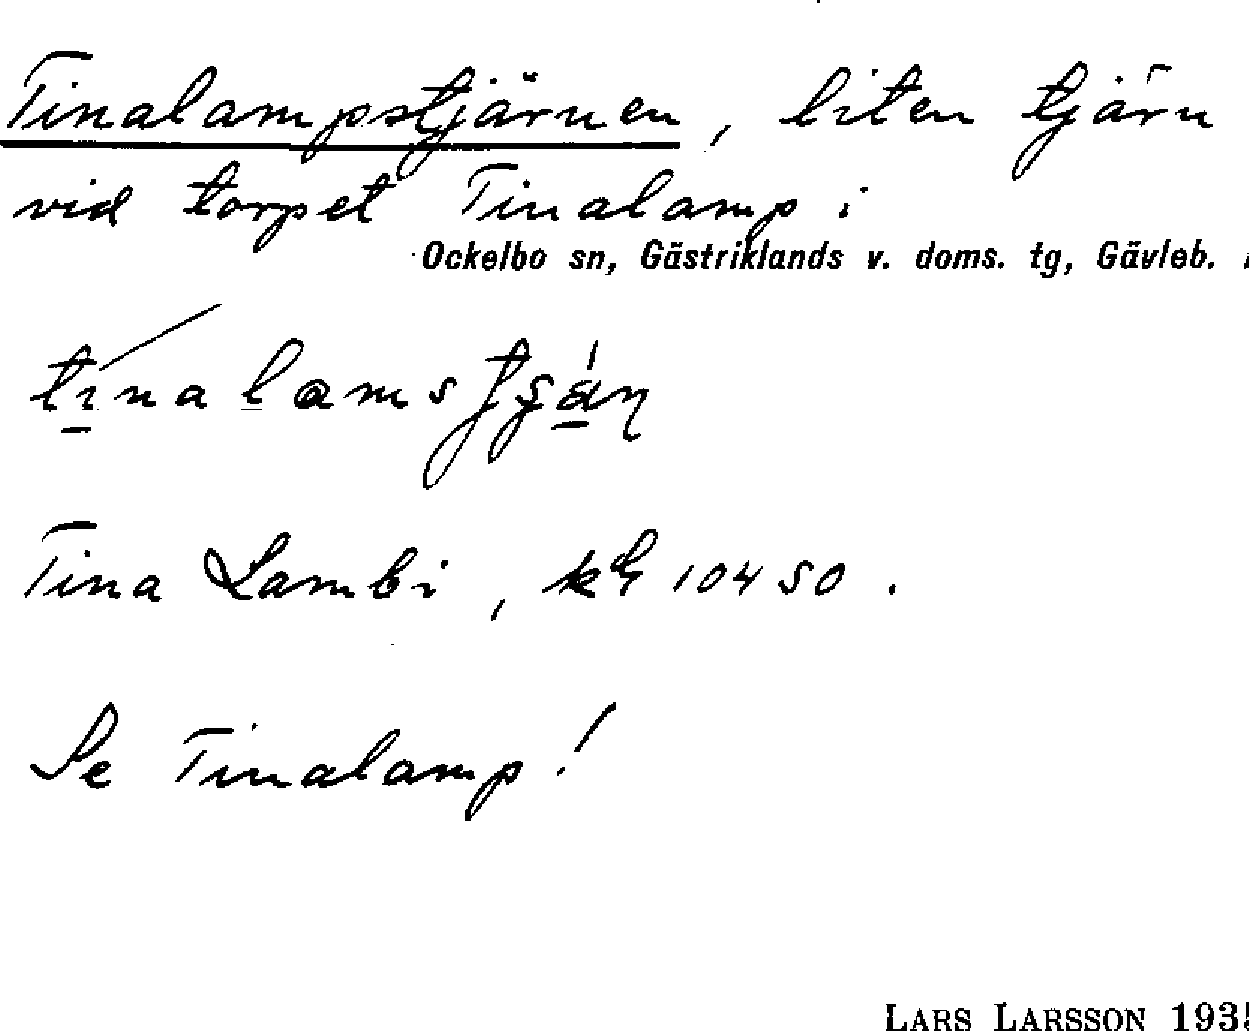 Tinalampstjärnen, liten tjärn
vid torpet Tinalamp i
Ockelbo sn, Gästriklands v. doms. tg, Gävleb.
Tina Lambi, kh 10450.
Se Tinalamp!
LARS LARSSON